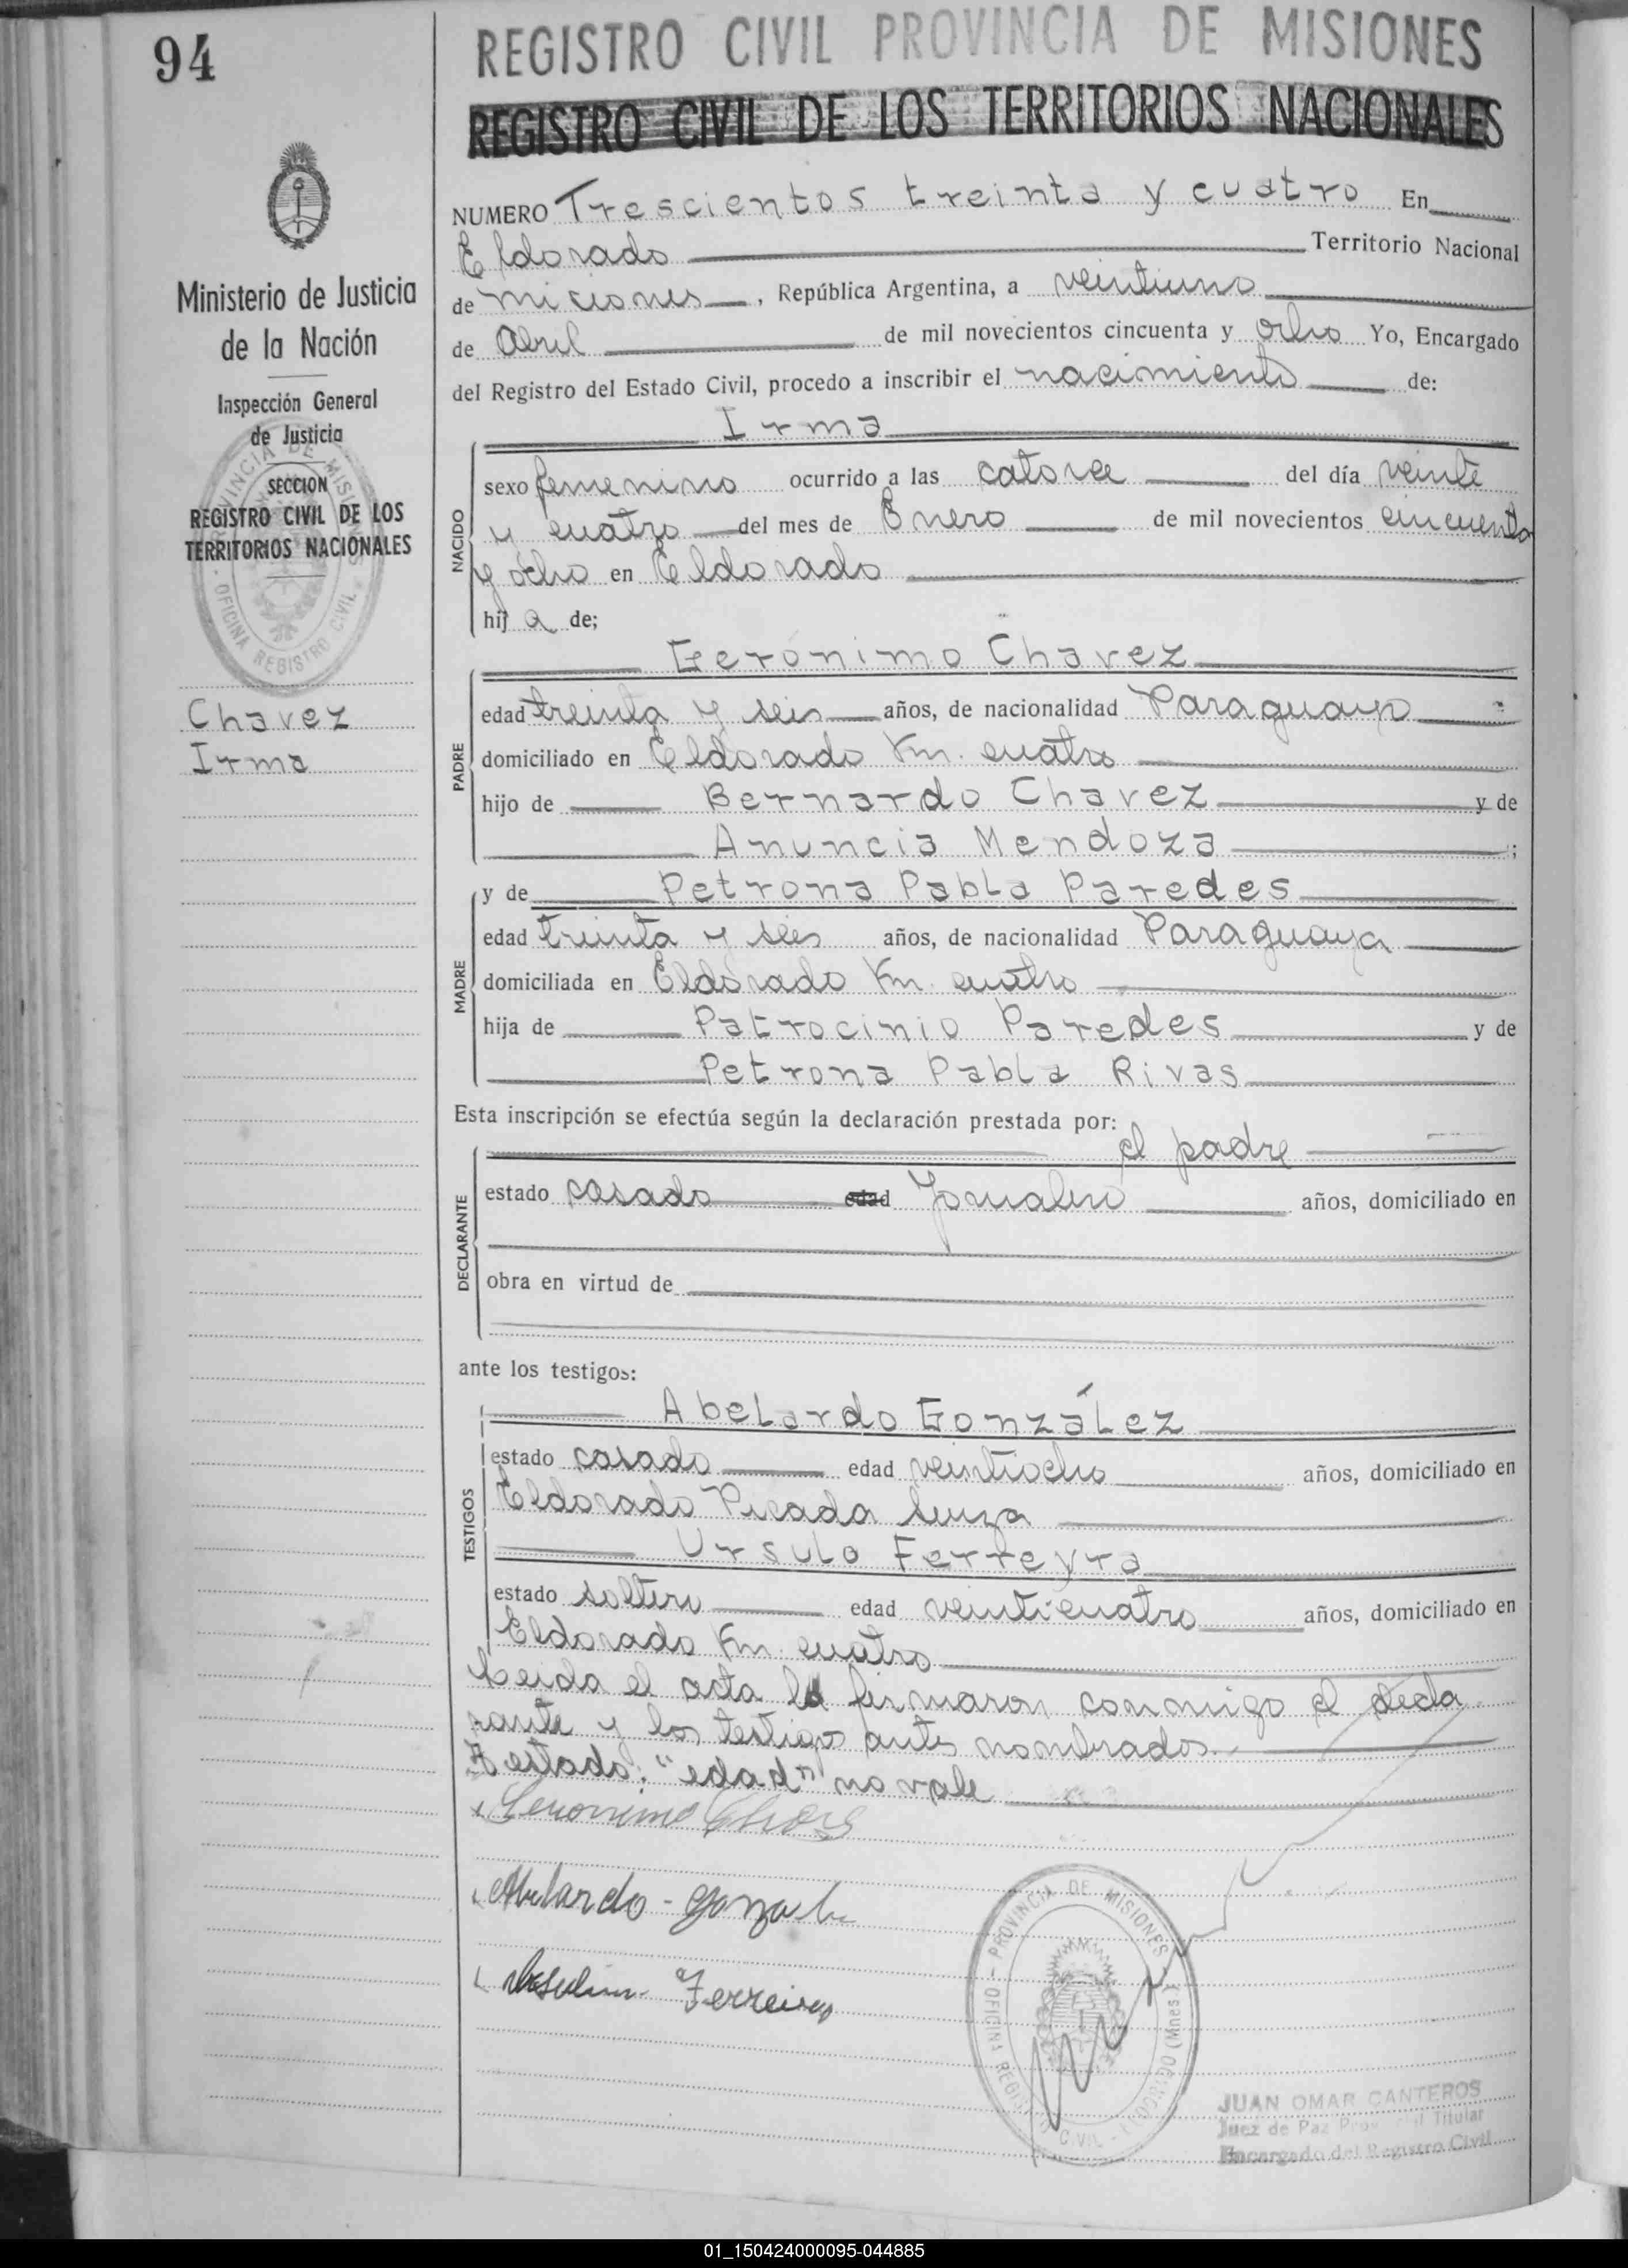 94
REGISTRO CIVIL PROVINCIA DE MISIONES
REGISTRO CIVIL DE LOS TERRITORIOS NACIONALES
Ministerio de Justicia
de la Nación
Inspección General
de Justicia
SECCION
REGISTRO CIVIL DE LOS
TERRITORIOS NACIONALES
PROVINCIA DE MISIONES
OFICINA REGISTRO CIVIL
Chavez
Irma
NUMERO Trescientos treinta y cuatro En
Eldorado Territorio Nacional
de Misiones, República Argentina, a veintiuno
de Abril de mil novecientos cincuenta y ocho Yo, Encargado
del Registro del Estado Civil, procedo a inscribir el nacimiento de:
Irma
NACIDO
sexo femenino ocurrido a las catorce del día veinte
y cuatro del mes de Enero de mil novecientos cincuenta
y ocho en Eldorado
hija de;
Gerónimo Chavez
PADRE
edad treinta y seis años, de nacionalidad Paraguayo
domiciliado en Eldorado Km. cuatro
hijo de Bernardo Chavez y de
Anuncia Mendoza;
y de Petrona Pabla Paredes
MADRE
edad treinta y seis años, de nacionalidad Paraguaya
domiciliada en Eldorado Km. cuatro
hija de Patrocinio Paredes y de
Petrona Pabla Rivas
Esta inscripción se efectúa según la declaración prestada por:
el padre
DECLARANTE
estado casado edad Jornalero años, domiciliado en
obra en virtud de
ante los testigos:
Abelardo González
TESTIGOS
estado casado edad veintiocho años, domiciliado en
Eldorado Picada Suiza
Ursulo Ferreyra
estado soltero edad veinticuatro años, domiciliado en
Eldorado Km. cuatro
Leida el acta la firmaron conmigo el decla
rante y los testigos antes nombrados.
Testado: "edad" no vale
Geronimo Chavez
Abelardo - Gonzale
Ferreira
PROVINCIA DE MISIONES
OFICINA REGISTRO CIVIL - ELDORADO (Mnes.)
JUAN OMAR CANTEROS
Juez de Paz Titular
Encargado del Registro Civil
01_150424000095-044885